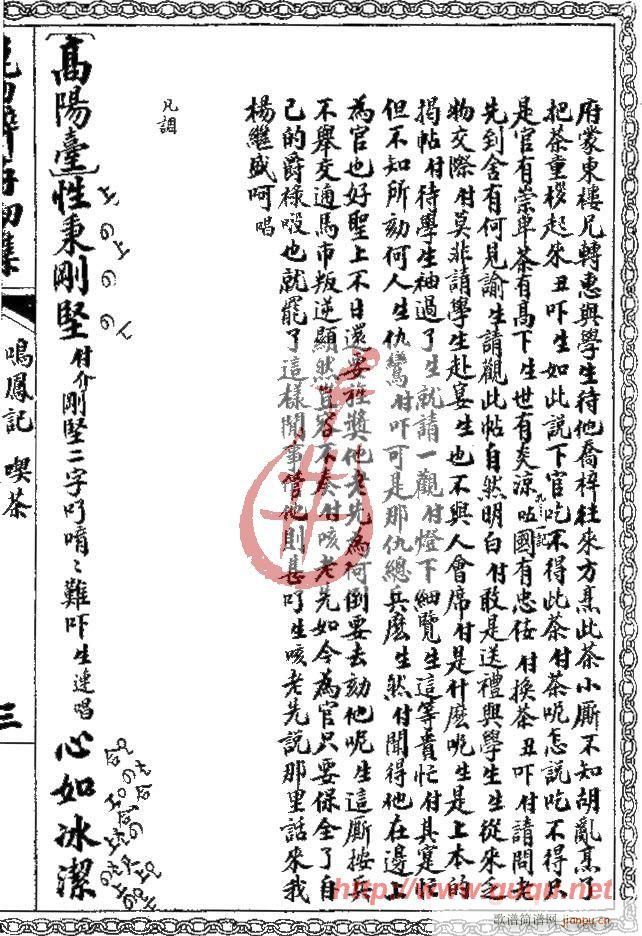 府蒙東樓兄轉惠與學生待他喬梓往來方烹此茶小厮不知胡亂烹了
把茶重拶起來丑吓生如此說下官吃不得此茶付茶呢怎說吃不得只
是官有崇卑茶有高下生世有炎涼 國有忠佞付換茶丑吓付請問老
先到舍有何見諭生請觀此帖自然明白付敢是送禮與學生生從來乏
物交際付莫非請學生赴宴生也不與人會席付是什麽呢生是上本的
揭帖付待學生袖過了生就請一觀付燈下細覽生這等貴忙付其寔忙
但不知所劾何人生仇鸞付吓可是那仇總兵麽生然付聞得他在邊上
為官也好聖上不日還要 獎他老先為何倒要去劾他呢生這厮按兵
不舉交通馬市叛逆顯然豈容不奏付咳老先如今為官只要保全了自
己的爵祿 也就罷了這樣閒事管他則甚 生咳老先說那里話來我
楊繼盛呵唱
凡調
高陽臺 性秉剛堅 付介剛堅二字 唷唷難吓生連唱 心如冰潔
鳴鳳記 喫茶
三
http://www.guqu.net
歌谱简谱网
jianpu.cn